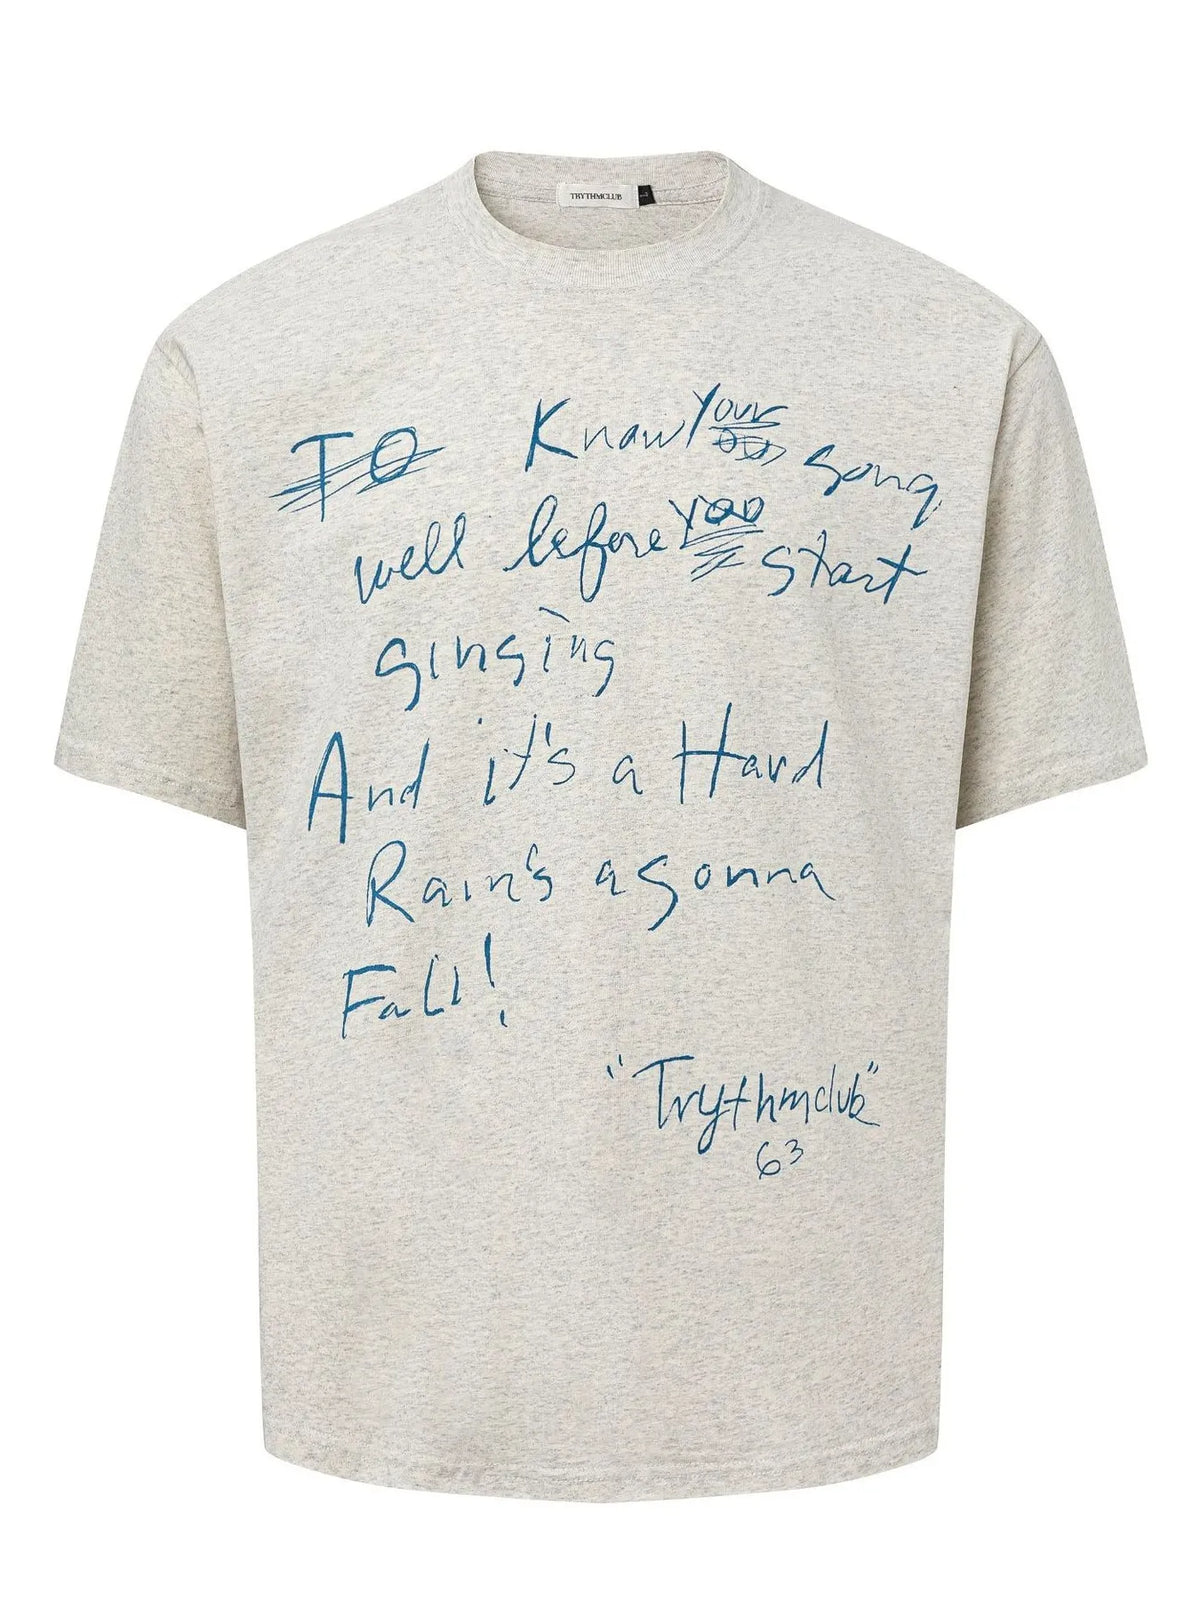 TRYTHMCLUB
1
TO Know Your song
well before you start
singing
And it's a Hard
Rain's a gonna
Fall!
"Trythmclub"
63